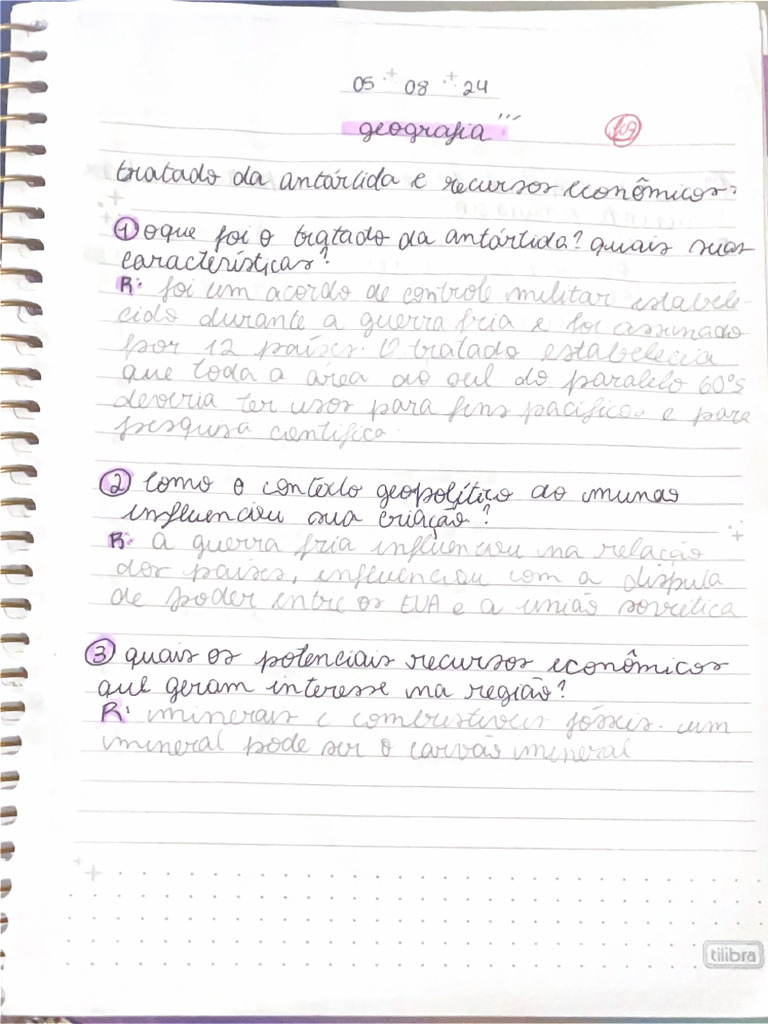 05 08 24
geografia
109
tratado da antártida e recursos econômicos:
1 oque foi o tratado da antártida? quais suas
características?
R: foi um acordo de controle militar estabele-
cido durante a guerra fria e foi assinado
por 12 países. O tratado estabelecia
que toda a área ao sul do paralelo 60°s
deveria ter usos para fins pacíficos e para
pesquisa científica.
2 Como o contexto geopolítico do mundo
influenciou sua criação?
R: A guerra fria influenciou na relação
dos países, influenciou com a disputa
de poder entre os EUA e a união soviética
3 quais os potenciais recursos econômicos
que geram interesse na região?
R: minerais e combustíveis fósseis. um
mineral pode ser o carvão mineral
tilibra